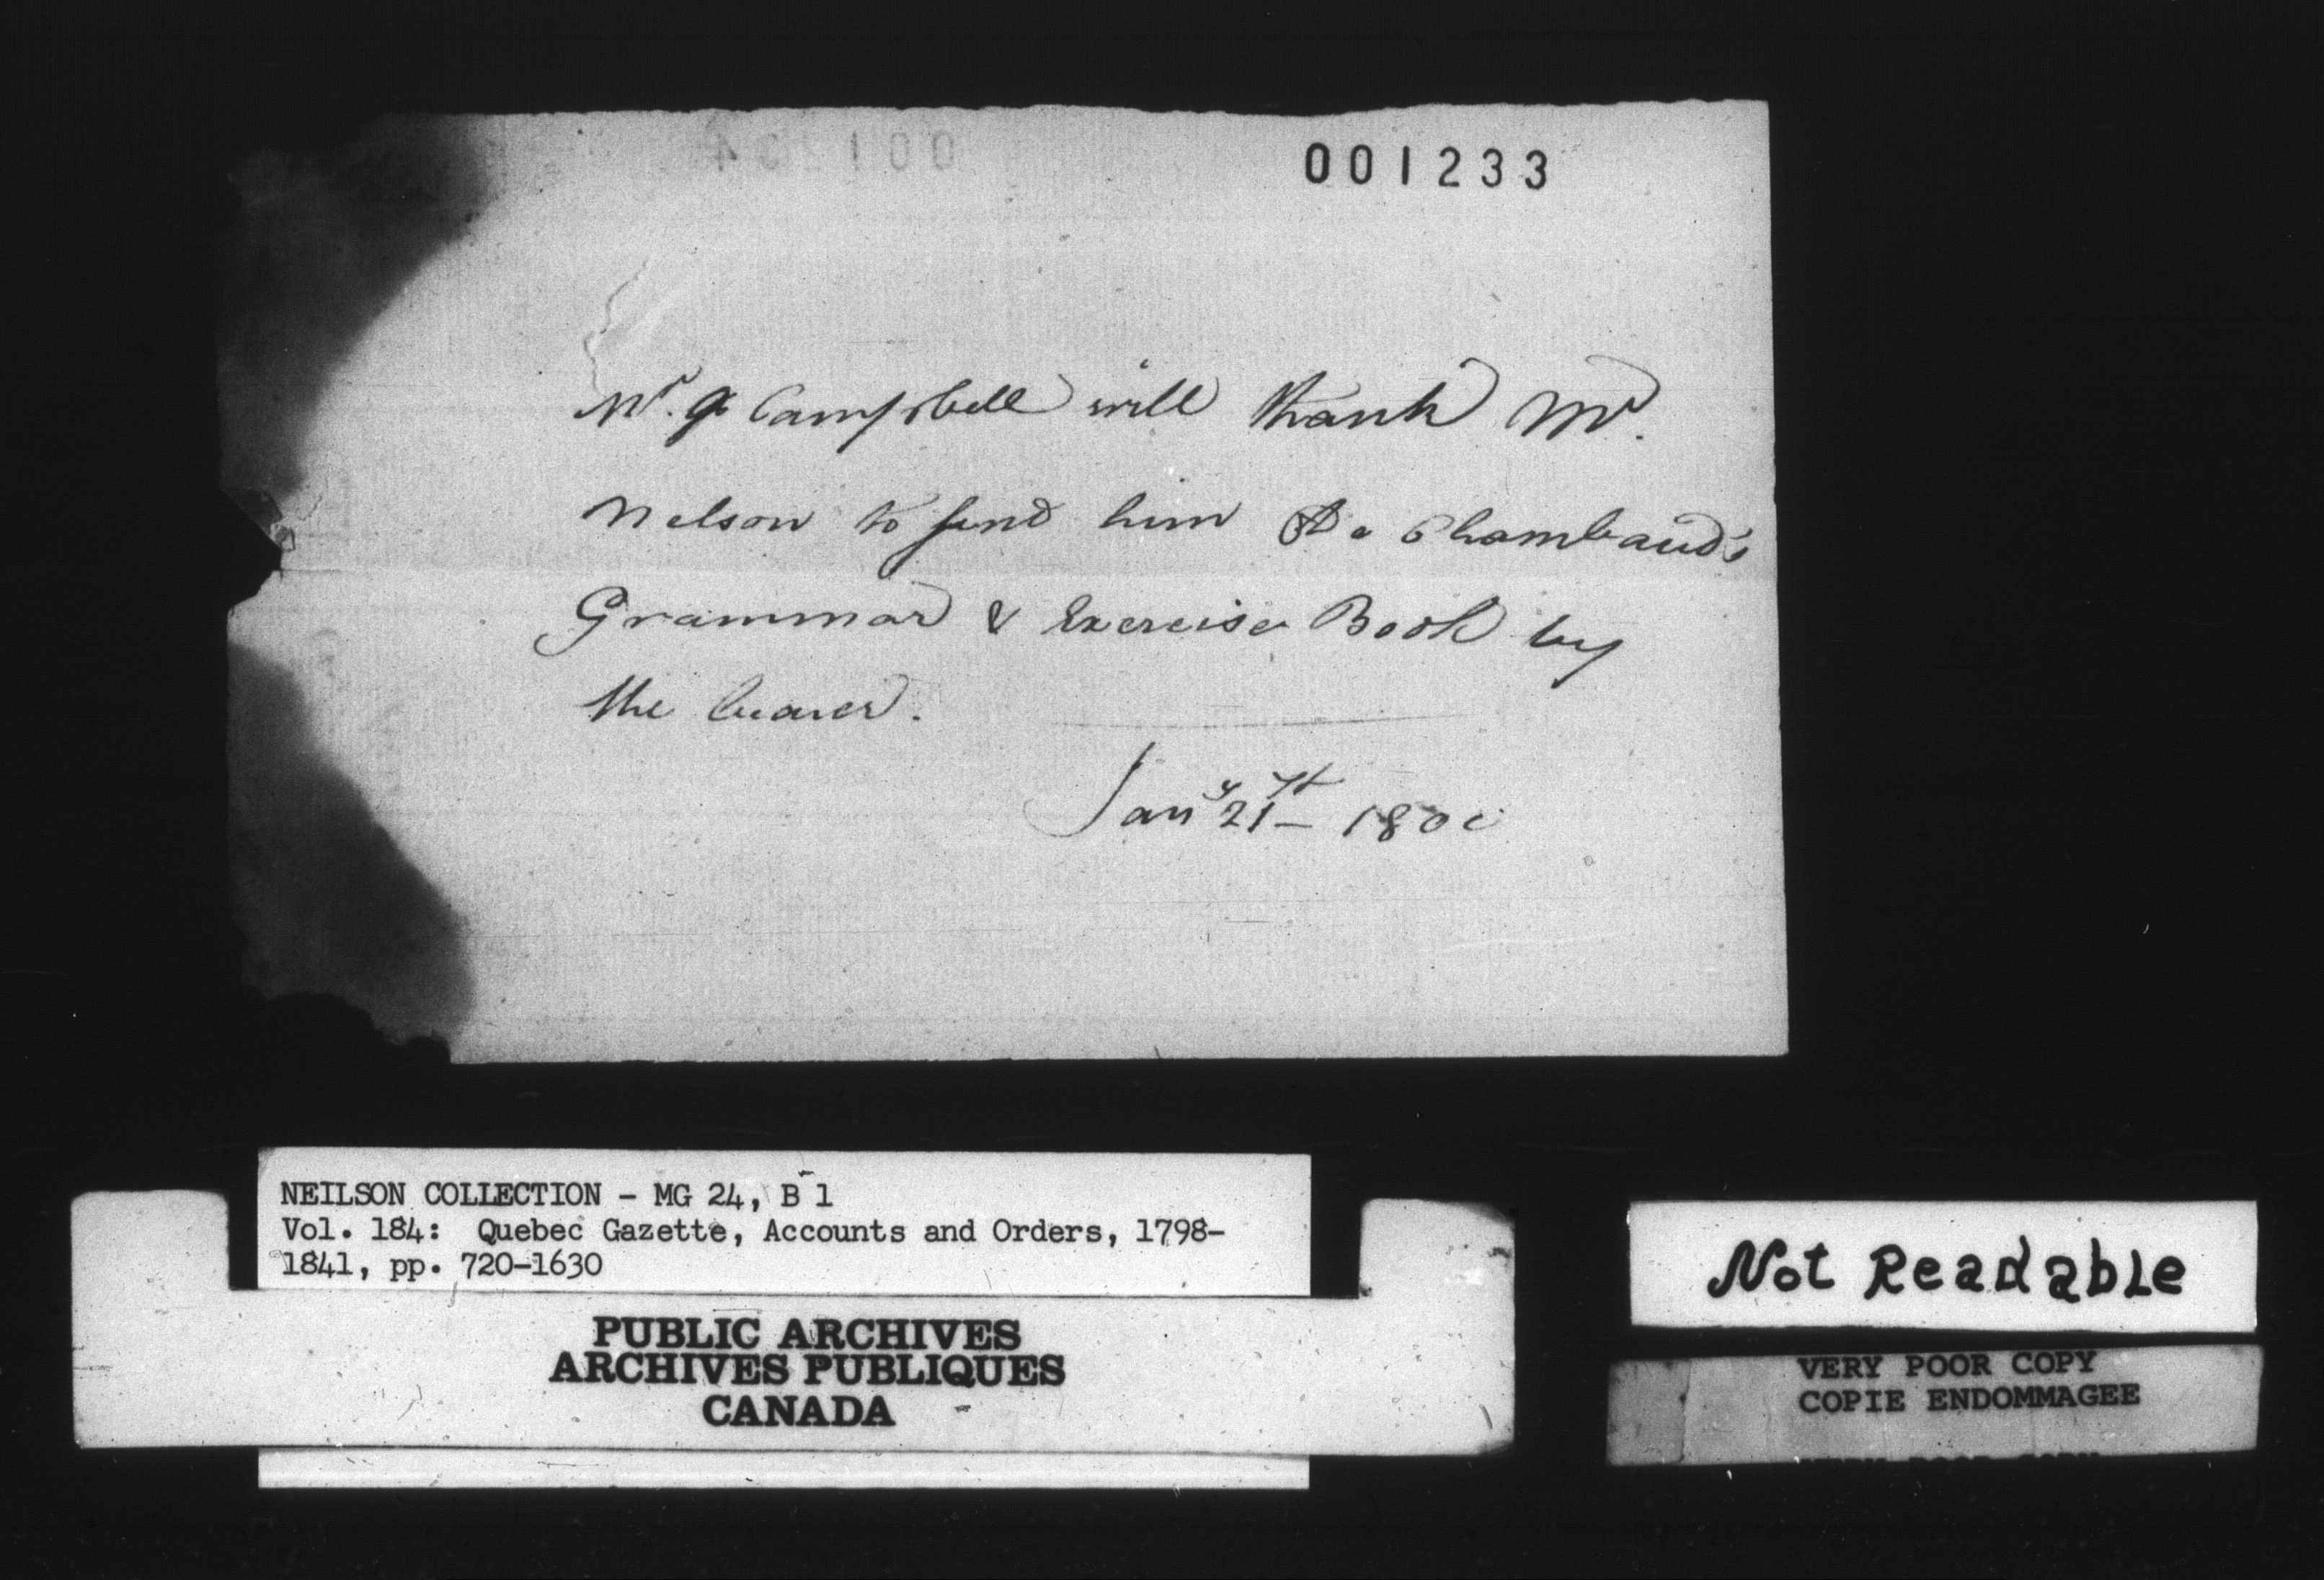 001233
Mr. Campbell will thank Mr.
Nelson to send him a Chambaud's
Grammar & Exercise Book by
the bearer.
Jany 21st 180
NEILSON COLLECTION - MG 24, B 1
Vol. 184: Quebec Gazette, Accounts and Orders, 1798-
1841, pp. 720-1630
PUBLIC ARCHIVES
ARCHIVES PUBLIQUES
CANADA
Not Readable
VERY POOR COPY
COPIE ENDOMMAGEE